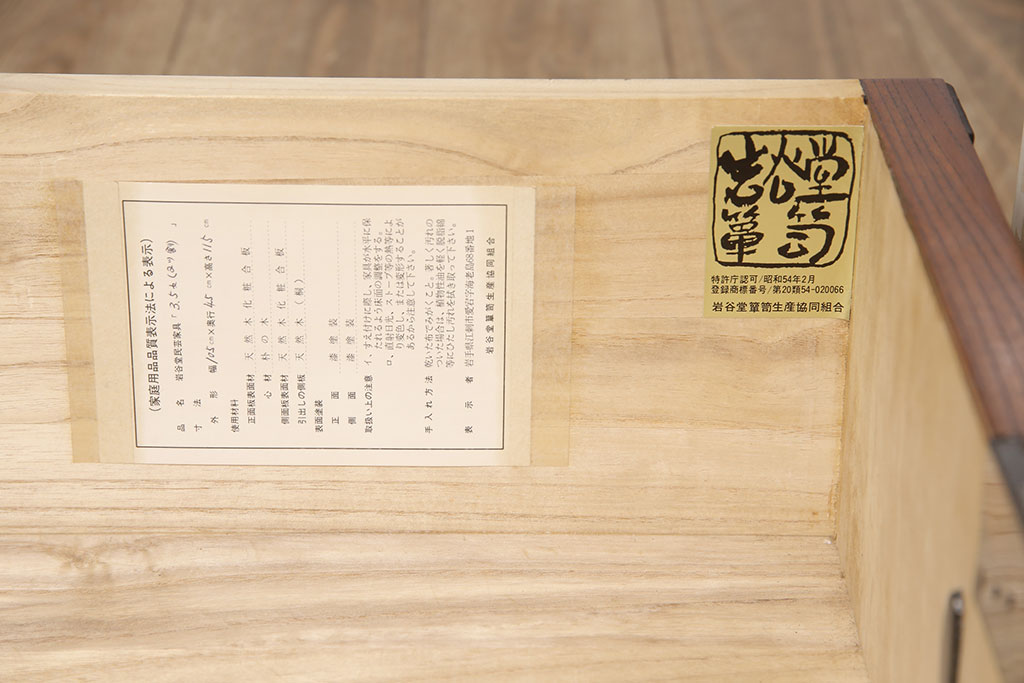 (家庭用品品質表示法による表示)
品名 岩谷堂民芸家具「3.5尺
寸法
外形 幅105cm×奥行45cm×高さ115cm
使用材料
正面板表面材 天然木化粧合板
心材 朴の木
側面板表面材 天然木化粧合板
引出しの側板 天然木(桐)
表面塗装
正面 漆塗装
側面 漆塗装
取扱い上の注意 イ、すえ付けに際し、家具が水平に保
たれるよう床面の調整をする。
ロ、直射日光、ストーブ等の熱等によ
り変色し、または変形することが
あるから注意して下さい。
手入れ方法 乾いた布でみがくこと。著しく汚れの
ついた場合は、植物性油を軽く脱脂綿
等にひたし汚れを拭き取って下さい。
表示者 岩手県江刺市愛宕字海老島68番地1
岩谷堂簞笥生産協同組合
岩谷堂
簞笥
特許庁認可/昭和54年2月
登録商標番号/第20類54-020066
岩谷堂簞笥生産協同組合